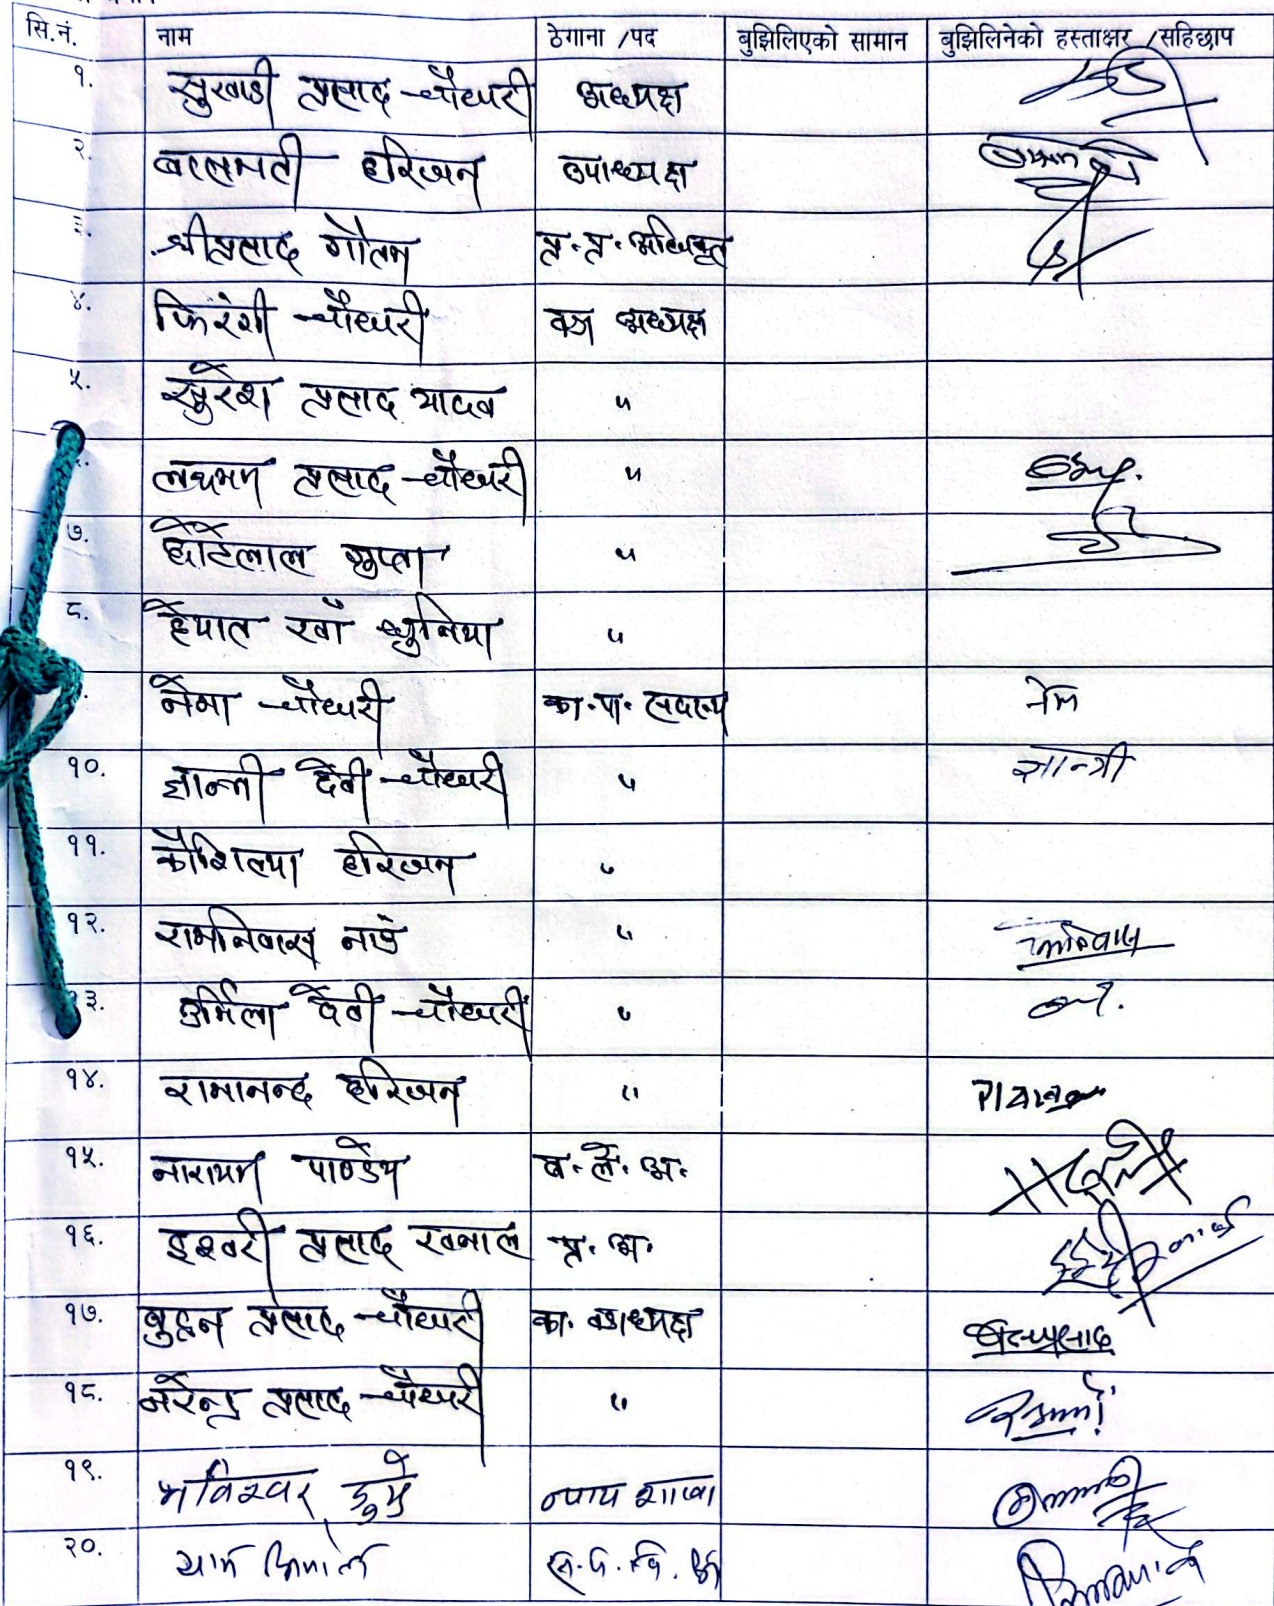 सि.नं. नाम ठेगाना /पद बुझिलिएको सामान बुझिलिनेको हस्ताक्षर /सहिछाप
१. सुखाडी प्रसाद चौधरी अध्यक्ष
२. बालमती हरिजन उपाध्यक्ष
३. श्रीप्रसाद गौतम प्र. प्र. अधिकृत
४. फिरंगी चौधरी वडा अध्यक्ष
५. सुरेश प्रसाद यादव "
लक्ष्मण प्रसाद चौधरी "
७. छोटेलाल गुप्ता "
८. हैपात खाँ धुनिया "
नेमा चौधरी का. पा. सदस्य नेम
१०. शान्ती देवी चौधरी " शान्त्री
११. कौशिल्या हरिजन "
१२. रामनिवास नाउँ "
१३. उर्मिला देवी चौधरी "
१४. रामानन्द हरिजन "
१५. नारायण पाण्डेय ब. ले. अ.
१६. इश्वरी प्रसाद खनाल प्र. अ.
१७. बुद्दन प्रसाद चौधरी का. वडाध्यक्ष
१८. नरेन्द्र प्रसाद चौधरी "
१९. न्याय शाखा
२०.